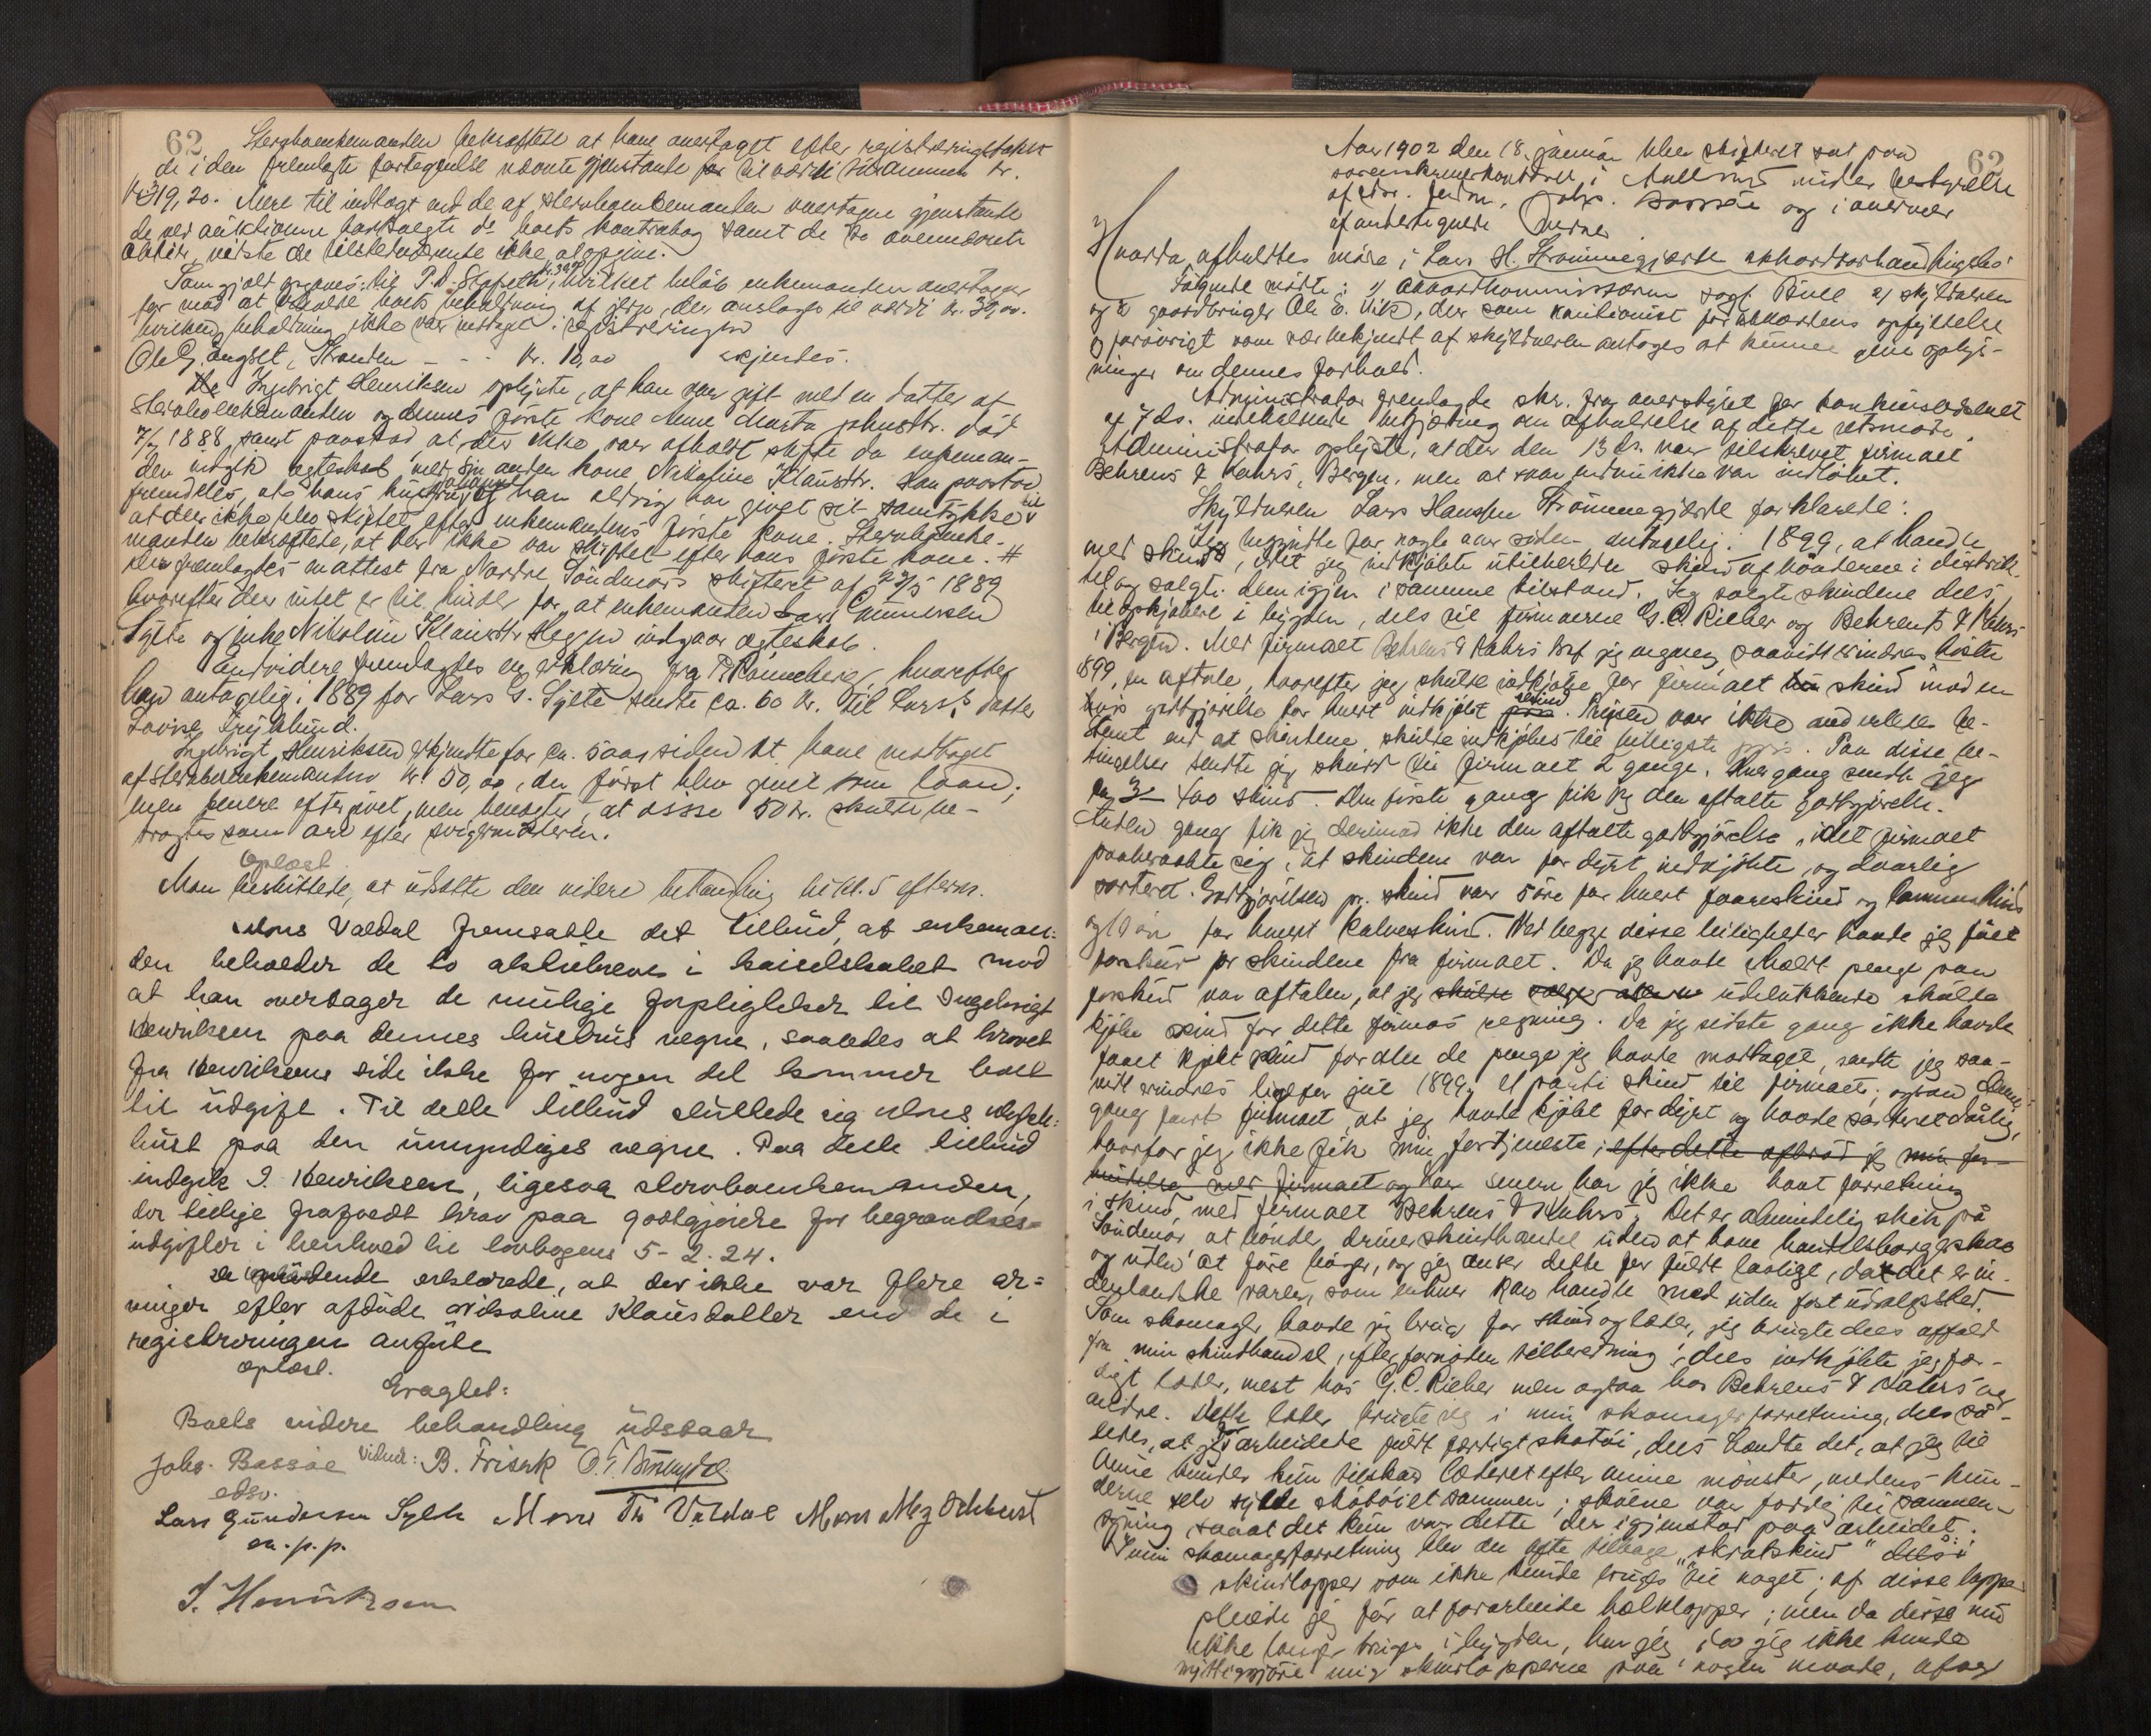 62
Sterboenkemanden bekræftede at have overtaget efter registreringstakst
de i den fremlagte fortegnelse nævnte gjenstande til værdi sammen kr.
19,20. Mere til indtægt end de af sterboenkemanden overtagne gjenstande
de ved auktionen bortsolgte do boets kontrabog samt de to ovennævnte
aktier, vidste de tilstedeværende ikke at opgive.
Som gjæld opgaves: til P. D. Stafseth, hvilket beløb enkemanden overtager
for mod at beholde boets beholdning af , der anslages til værdi kr. 39,00.
hvilken beholdning ikke var medtaget i registreringen
Ole G. Langset, Stranden - - - kr. 10,00 erkjendes.
Ingebrigt Henriksen oplyste, at han var gift med en datter af
sterboenkemanden og dennes første kone Anne Marta Johnsdtr. død
1888, samt paastod, at der ikke var afholdt skifte da enkeman-
den indgik egteskab med sin anden kone Nikoline Klausdtr. Han paastod
fremdeles, at hans hustru og han aldrig har givet sit samtykke til
at der ikke blev skiftet efter enkemandens første kone. Sterboenke-
manden bekræftede, at der ikke var skiftet efter hans første kone. #
Der fremlagdes en attest fra Nordre Søndmørs skifteret af 28/5 1889
hvorefter der intet er til hinder for, at enkemanden Lars Gundersen
Sylte og enke Nikoline Klausdtr. Heggen indgaar ægteskab.
Endvidere fremlagdes en erklæring fra P. Rønneberg, hvorefter
han antagelig. 1889 for Lars G. Sylte sendte ca. 60 kr. til Lars's datter
Lovise Frykhund.
Ingebrigt Henriksen erkjendte for ca. 5 aar siden at have modtaget
af sterboenkemanden kr. 50,00, der først blev givet som laan;
men senere eftergivet, men benegter, at disse 50 kr. skulde be-
tragtes som arv efter svigermoderen.
Oplæst
Man besluttede, at udsætte den videre behandling til kl. 5 efterm.
Mons Valdal fremsatte det tilbud, at enkeman-
den beholder de to aktiebreve i kaiselskabet mod
at han overtager de mulige forpligtelser til Ingebrigt
Henriksen paa dennes hustrus vegne, saaledes at kravet
fra Henriksens side ikke for nogen del kommer boet
til udgift. Til dette tilbud sluttede sig Mons Megste-
hust paa den umyndiges vegne. Paa dette tilbud
indgik I. Henriksen, ligesaa sterboenkemanden,
der tillige frafaldt krav paa godtgjørelse for begravelses-
udgifter i henhold til lovbogens 5-2-24.
De mødende erklærede, at der ikke var flere ar-
vinger efter afdøde Nikoline Klausdatter end de i
registreringen anførte
oplæst.
Eragtet:
Boets videre behandling udstaar
Johs. Bassøe Vidner: B. Frisak
edsv.
Lars Gundersen Sylte Mons Th Valdal Mons Megstehust
m. p. p.
I. Henriksen
62
Aar 1902 den 18. januar blev skifteret sat paa
sorenskriverkontoret i Aalesund under bestyrelse
af edsv. fuldm. Johs. Bassøe og i overvær
af undertegnede vidner
Hvorda afholdtes møde i Lars H. Strømmegjærde akkordforhandlingsbo
Følgende mødte: 1) akkordkommissæren sagf. Bull 2) skyldneren
og 3 gaardbruger Ole E. Vik, der som kautionist for akkordens opfyldelse
og forøvrigt som vel bekjendt af skyldneren antages at kunne give oplys-
ninger om dennes forhold.
Administrator fremlagde skr. fra overstyret for konkursvæsenet
af 7 ds. indeholdende begjæring om afholdelse af dette retsmøde.
Administrator oplyste, at der den 13 ds. var tilskrevet firmaet
Behrens & Kahrs, Bergen, men at svar endnu ikke var indløbet.
Skyldneren Lars Hanssen Strømmegjærde forklarede:
Jeg begyndte for nogle aar siden antagelig i 1899, at handle
med skind, idet jeg indkjøbte utilberedte skind af bønderne i distrik-
tet og solgte dem igjen i samme tilstand. Jeg solgte skindene dels
til opkjøbere i bygden, dels til firmaerne G. C. Rieber og Behrens & Kahrs
i Bergen. Med firmaet Behrens & Kahrs traf jeg engang saavidt erindres høsten
1899, en aftale, hvorefter jeg skulde indkjøbe for firmaet skind mod en
vis godtgjørelse for hvert indkjøbt skind. Prisen var ikke anderledes be-
stemt end at skindene skulde indkjøbes til billigste pris. Paa disse be-
tingelser sendte jeg skind til firmaet 2 gange. Hver gang sendte jeg
ca 3-400 skind. Den første gang fik jeg den aftalte godtgjørelse.
Anden gang fik jeg derimod ikke den aftalte godtgjørelse, idet firmaet
paaberaabte sig, at skindene var for dyrt indkjøbte, og daarlig
sorteret. Godtgjørelsen pr. skind var 5 øre for hvert faareskind og lammeskind
og 10 øre for hvert kalveskind. Ved begge disse leiligheter havde jeg faaet
forskud pr skindene fra firmaet. Da jeg havde modt. penge paa
forskud var aftalen, at jeg skulde sælge udelukkende skulde
kjøbe skind for dette firmas regning. Da jeg sidste gang ikke havde
faaet kjøbt skind for alle de penge jeg havde modtaget, sendte jeg saa-
vidt erindres lige før jul 1899, et parti skind til firmaet; ogsaa denne
gang fandt firmaet, at jeg havde kjøbt for dyrt og havde sorteret dårlig,
hvorfor jeg ikke fik min fortjeneste; efter dette afbrød jeg min for-
bindelse med firmaet og har senere har jeg ikke havt forretning
i skind med firmaet Behrens & Kahrs. Det er almindelig skik på
Søndmør at bønder driver skindhandel uden at have handelsborgerskab
og uden at føre bøger, og jeg anser dette for fuldt lovlige, da det er in-
denlandske varer, som enhver kan handle med uden fast udsalgssted.
Som skomager havde jeg brug for skind og læder, jeg brugte dels affald
fra min skindhandel, efter fornøden tilberedning; dels indkjøbte jeg fær-
digt læder, mest hos G. C. Rieber men ogsaa hos Behrens & Kahrs og
andre. Dette læder brugte jeg i min skomagerforretning, dels så-
ledes, at jeg forarbeidede fuldt færdigt skotøi, dels hændte det, at jeg til
mine kunder kun tilskar læderet efter mine mønster, medens kun-
derne selv syede skotøiet sammen; skoene var færdig til sammen-
syning saaat det kun var dette der igjenstod paa arbeidet.
I min skomagerforretning blev der ofte tilbage "skrabskind" dels i
skindlapper som ikke kunde bruges til noget; af disse lapper
pleiede jeg før at forarbeide hælklapper; men da disse nu
ikke længer bruges i bygden, har jeg ikke kunde
nyttiggjøre mig skindlapperne paa nogen maade,